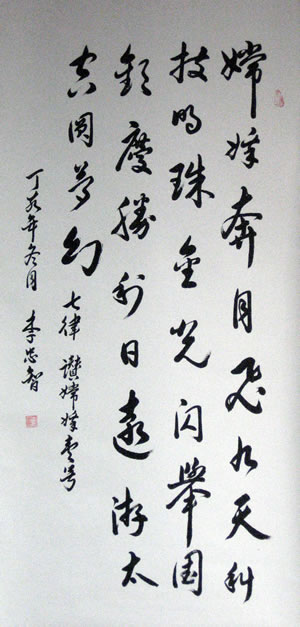 嫦娥奔月飞九天科
技明珠金光闪舉国
慶勝利日游太
空圆夢幻
七律 讃嫦娥壹号
丁亥年冬月 李忠智